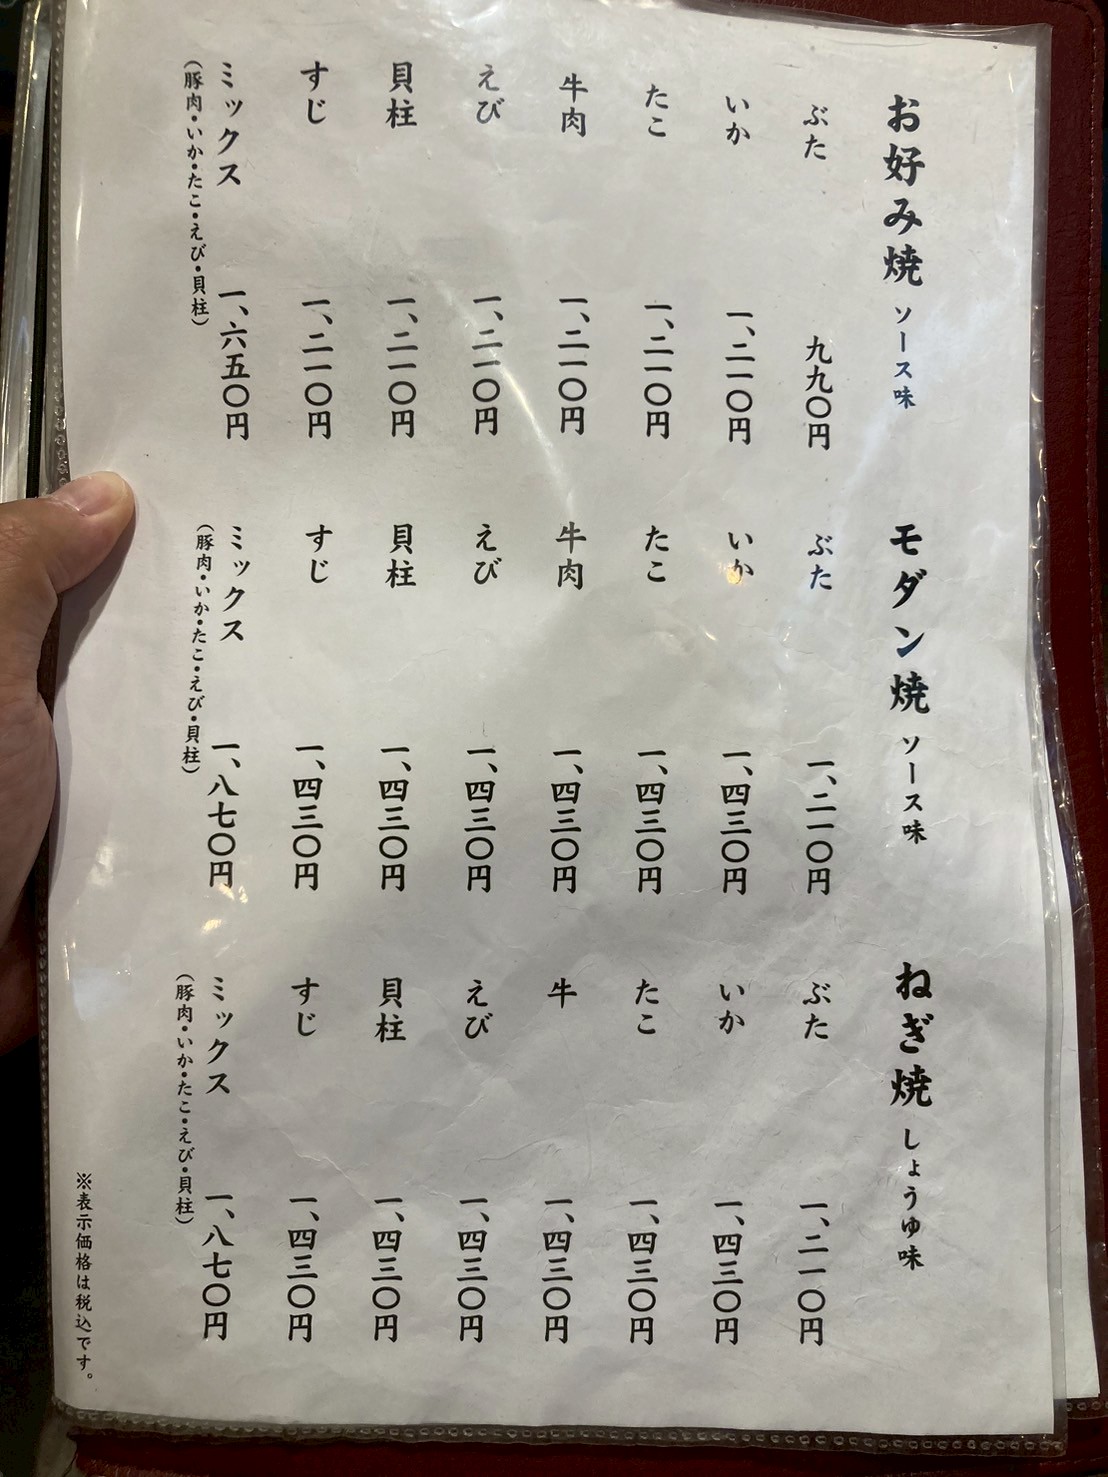 お好み焼 ソース味
ぶた 九九〇円
いか 一、二一〇円
たこ 一、二一〇円
牛肉 一、二一〇円
えび 一、二一〇円
貝柱 一、二一〇円
すじ 一、二一〇円
ミックス 一、六五〇円
（豚肉・いか・たこ・えび・貝柱）
モダン焼 ソース味
ぶた 一、二一〇円
いか 一、四三〇円
たこ 一、四三〇円
牛肉 一、四三〇円
えび 一、四三〇円
貝柱 一、四三〇円
すじ 一、四三〇円
ミックス 一、八七〇円
（豚肉・いか・たこ・えび・貝柱）
ねぎ焼 しょうゆ味
ぶた 一、二一〇円
いか 一、四三〇円
たこ 一、四三〇円
牛 一、四三〇円
えび 一、四三〇円
貝柱 一、四三〇円
すじ 一、四三〇円
ミックス 一、八七〇円
（豚肉・いか・たこ・えび・貝柱）
※表示価格は税込です。